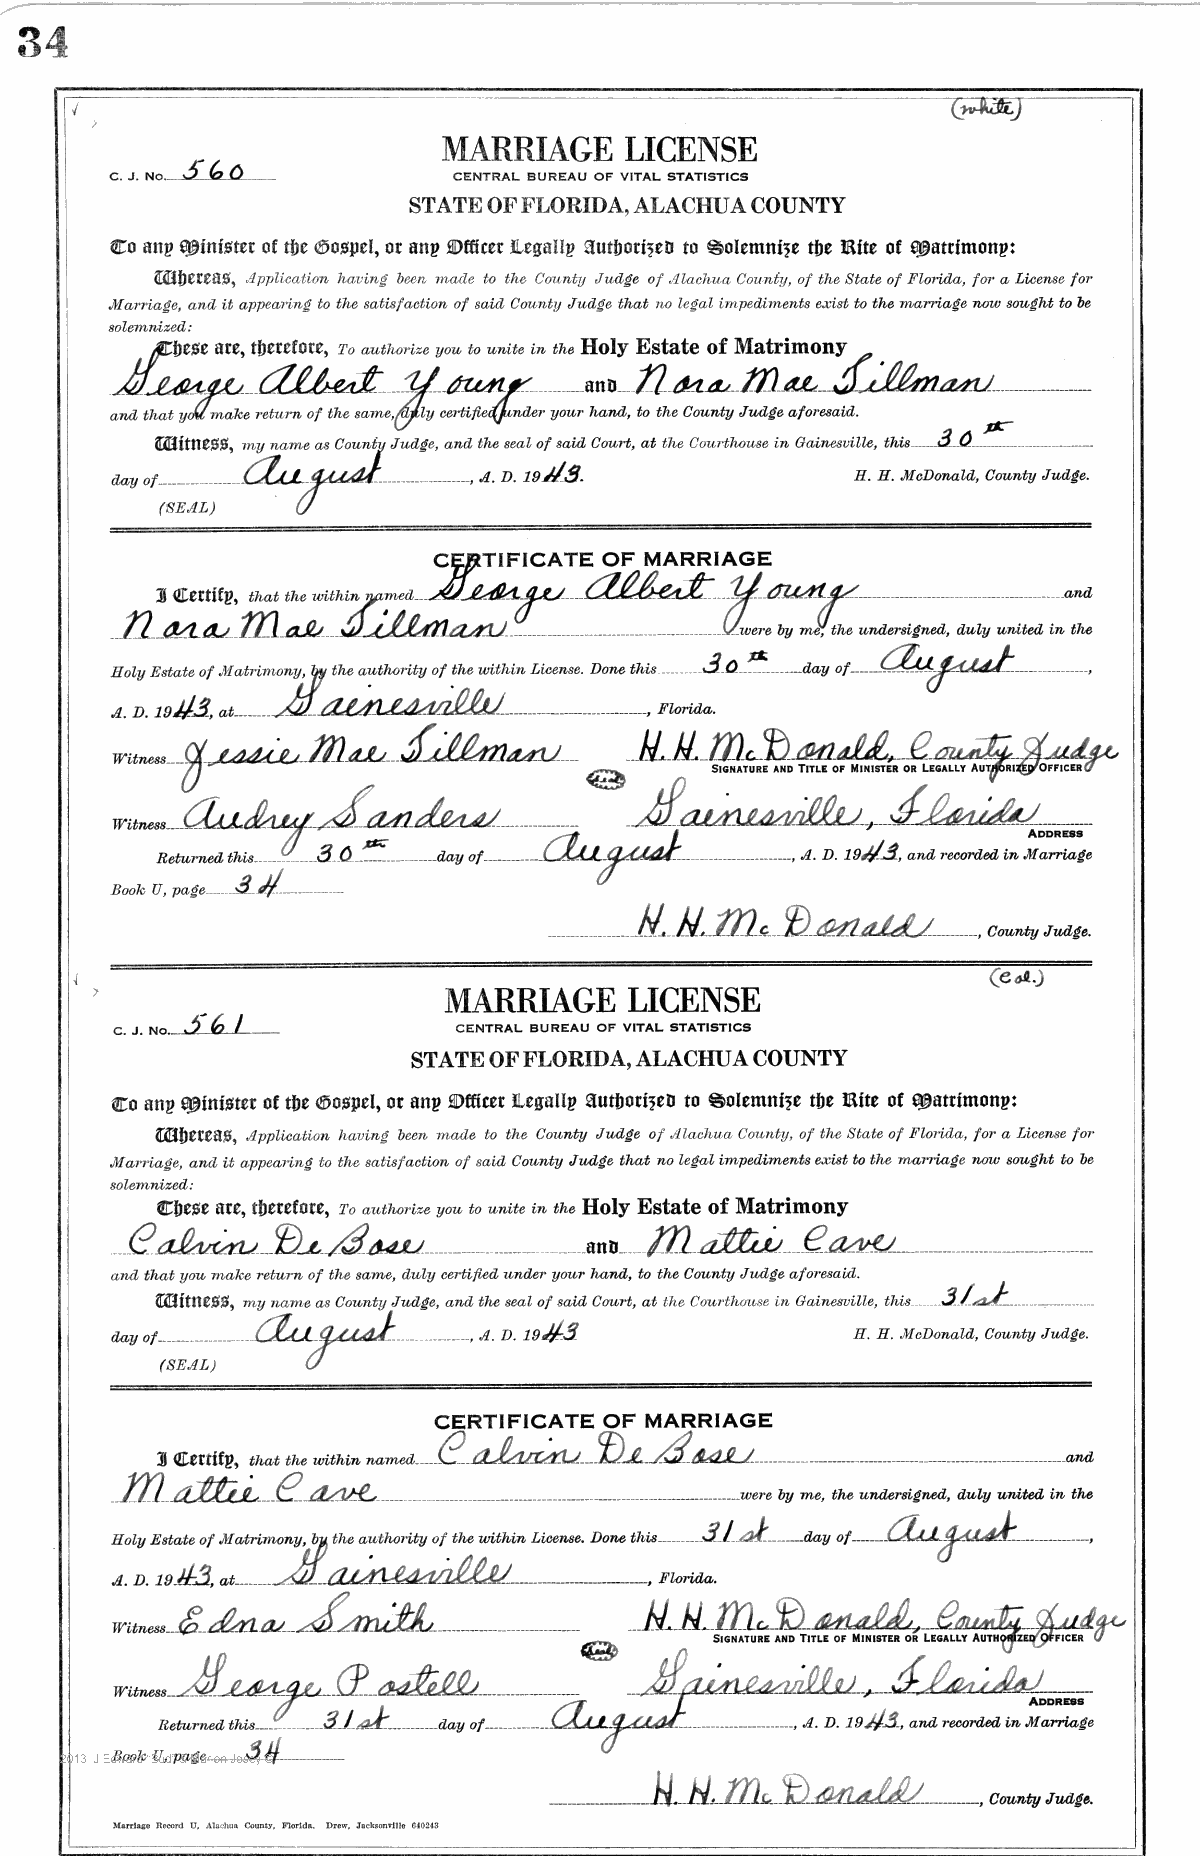 34
(white)
MARRIAGE LICENSE
C. J. No. 560
CENTRAL BUREAU OF VITAL STATISTICS
STATE OF FLORIDA, ALACHUA COUNTY
To any Minister of the Gospel, or any Officer Legally Authorized to Solemnize the Rite of Matrimony:
Whereas, Application having been made to the County Judge of Alachua County, of the State of Florida, for a License for
Marriage, and it appearing to the satisfaction of said County Judge that no legal impediments exist to the marriage now sought to be
solemnized:
These are, therefore, To authorize you to unite in the Holy Estate of Matrimony
George Albert Young and Nora Mae Tillman
and that you make return of the same, duly certified under your hand, to the County Judge aforesaid.
Witness, my name as County Judge, and the seal of said Court, at the Courthouse in Gainesville, this 30th
day of August, A. D. 1943. H. H. McDonald, County Judge.
(SEAL)
CERTIFICATE OF MARRIAGE
I Certify, that the within named George Albert Young and
Nora Mae Tillman were by me, the undersigned, duly united in the
Holy Estate of Matrimony, by the authority of the within License. Done this 30th day of August,
A. D. 1943, at Gainesville, Florida.
Witness Jessie Mae Tillman H. H. McDonald, County Judge
SIGNATURE AND TITLE OF MINISTER OR LEGALLY AUTHORIZED OFFICER
(Seal)
Witness Audrey Sanders Gainesville, Florida
ADDRESS
Returned this 30th day of August, A. D. 1943, and recorded in Marriage
Book U, page 34
H. H. McDonald, County Judge.
(Col.)
MARRIAGE LICENSE
C. J. No. 561
CENTRAL BUREAU OF VITAL STATISTICS
STATE OF FLORIDA, ALACHUA COUNTY
To any Minister of the Gospel, or any Officer Legally Authorized to Solemnize the Rite of Matrimony:
Whereas, Application having been made to the County Judge of Alachua County, of the State of Florida, for a License for
Marriage, and it appearing to the satisfaction of said County Judge that no legal impediments exist to the marriage now sought to be
solemnized:
These are, therefore, To authorize you to unite in the Holy Estate of Matrimony
Calvin De Bose and Mattie Cave
and that you make return of the same, duly certified under your hand, to the County Judge aforesaid.
Witness, my name as County Judge, and the seal of said Court, at the Courthouse in Gainesville, this 31st
day of August, A. D. 1943 H. H. McDonald, County Judge.
(SEAL)
CERTIFICATE OF MARRIAGE
I Certify, that the within named Calvin De Bose and
Mattie Cave were by me, the undersigned, duly united in the
Holy Estate of Matrimony, by the authority of the within License. Done this 31st day of August,
A. D. 1943, at Gainesville, Florida.
Witness Edna Smith H. H. McDonald, County Judge
SIGNATURE AND TITLE OF MINISTER OR LEGALLY AUTHORIZED OFFICER
(Seal)
Witness George Postell Gainesville, Florida
ADDRESS
Returned this 31st day of August, A. D. 1943, and recorded in Marriage
Book U, page 34
2013 J
H. H. McDonald, County Judge.
Marriage Record U, Alachua County, Florida. Drew, Jacksonville 640243